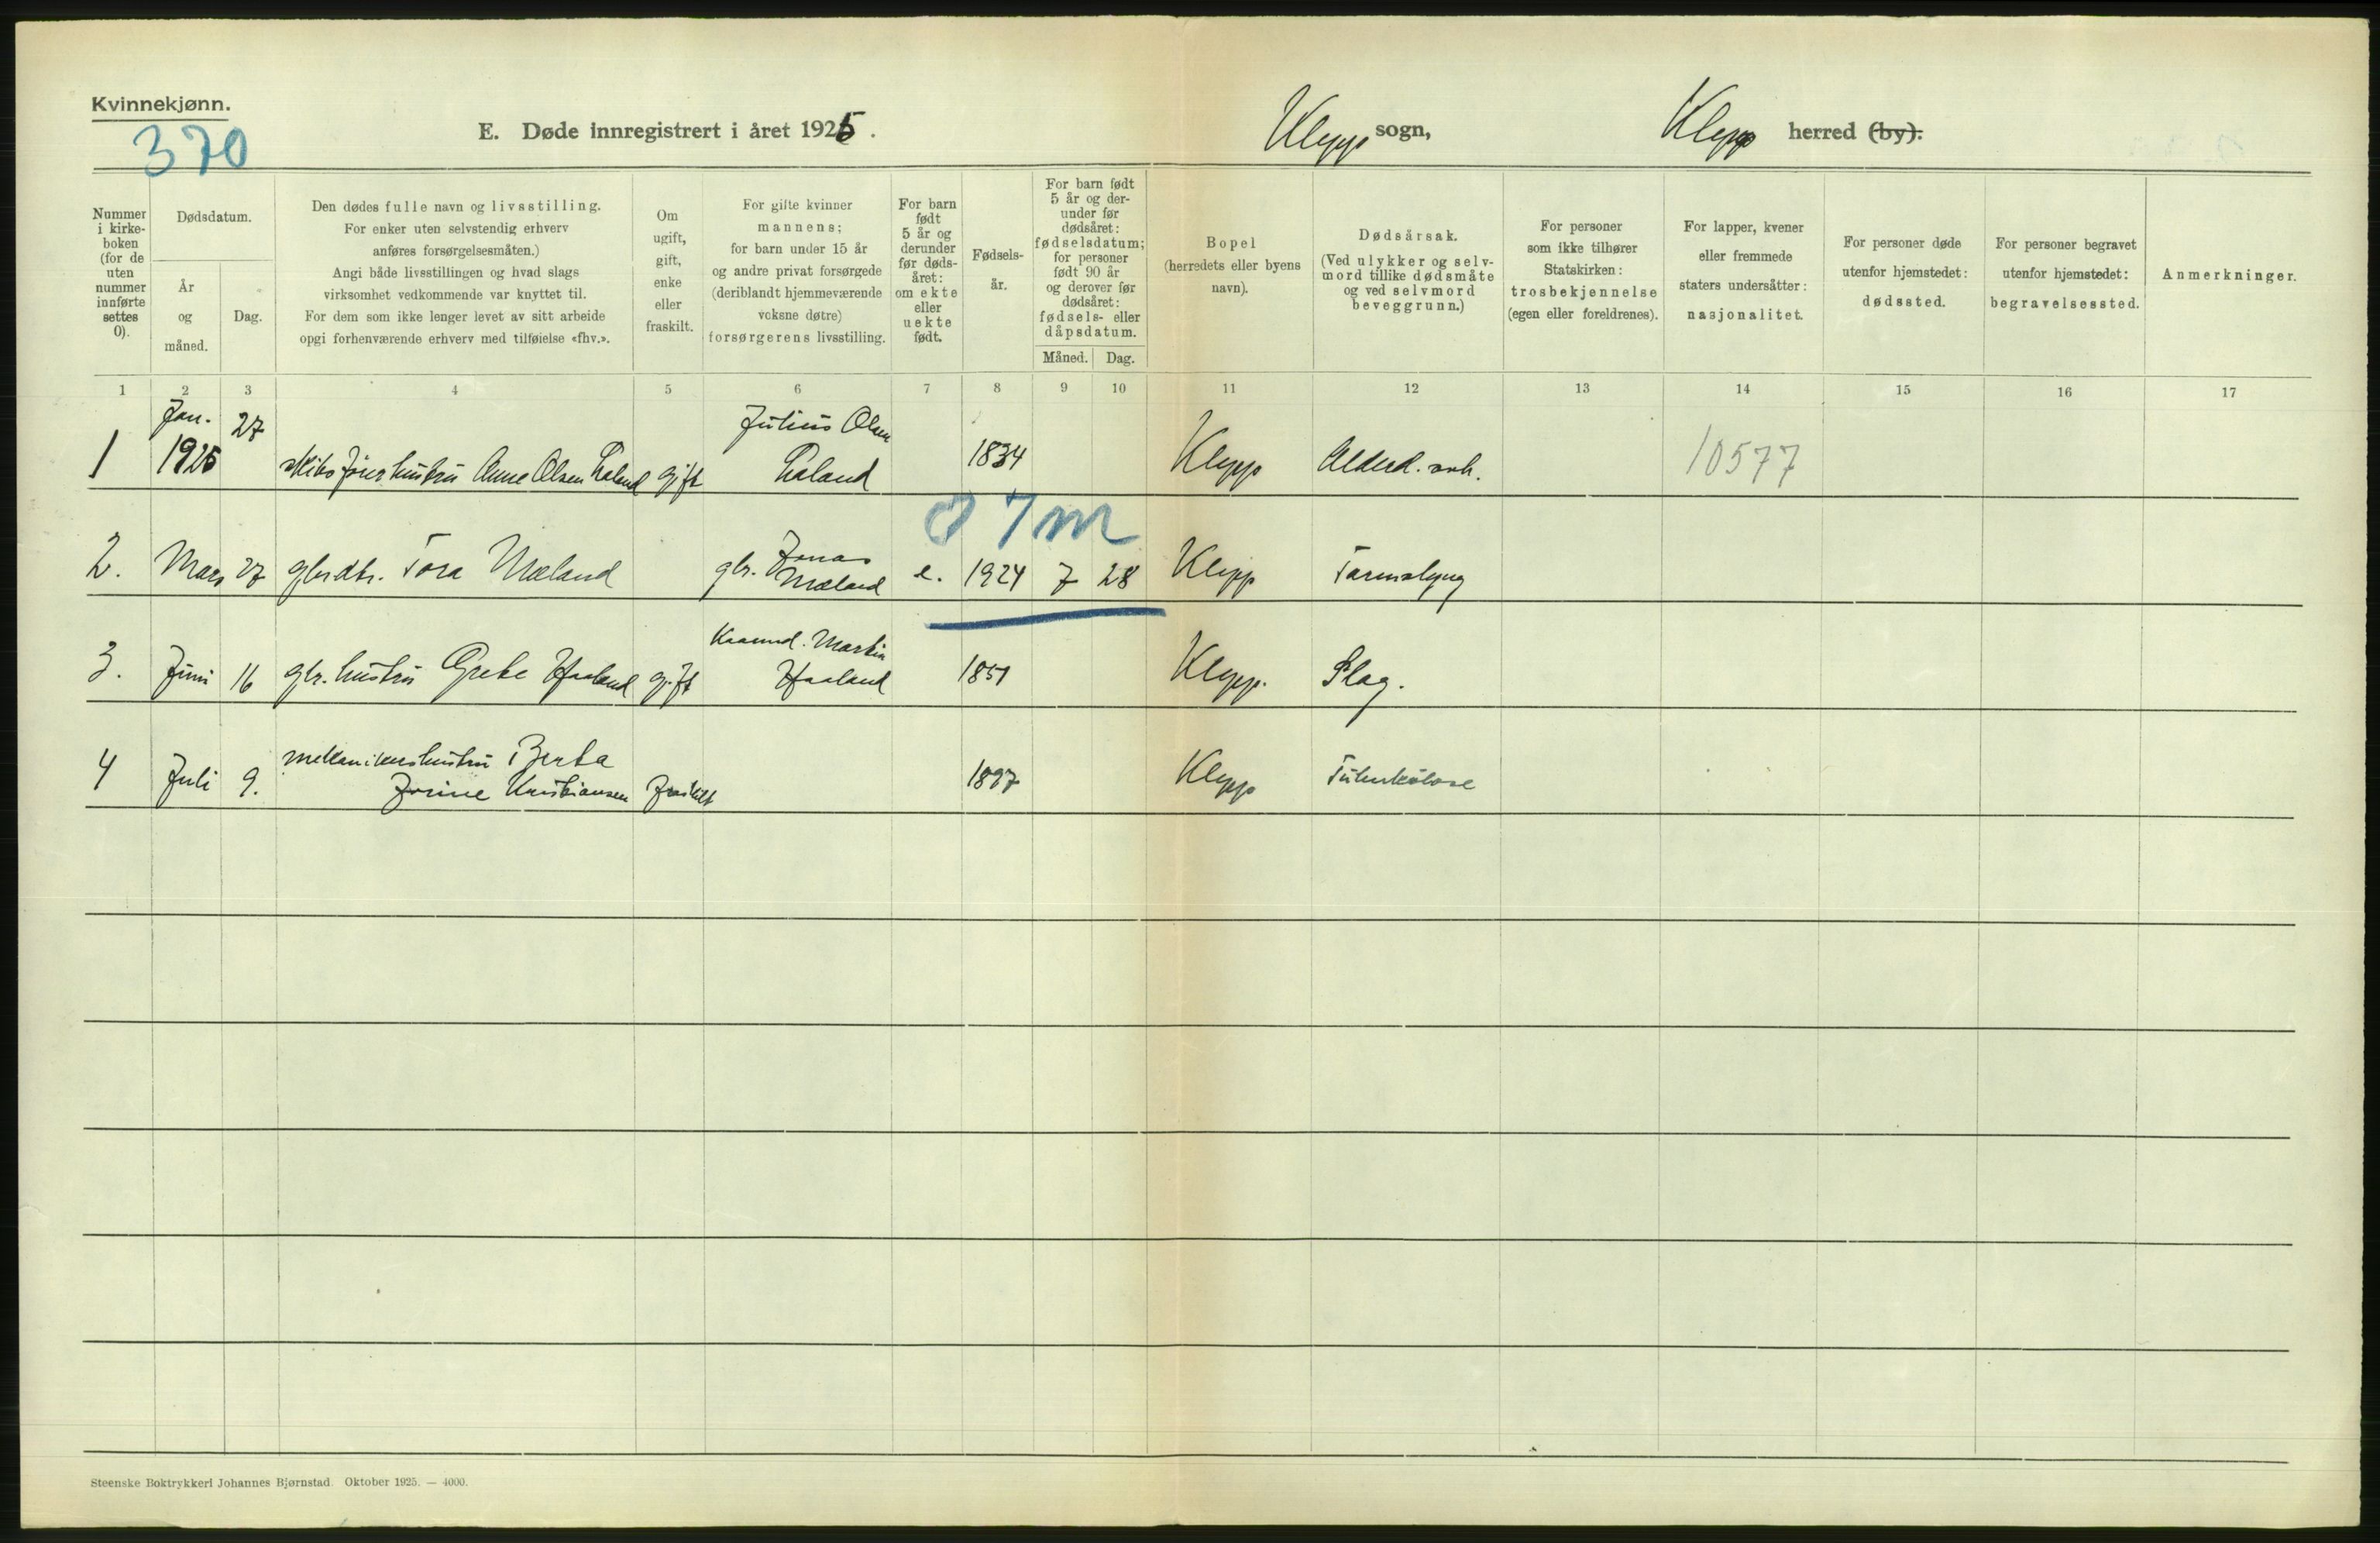 Kvinnekjønn.
370
E. Døde innregistrert i året 1925.
Klepp sogn,
Klepp herred (by).
Nummer
i kirke-
boken
(for de
uten
nummer
innførte
settes
0).
Dødsdatum.
År
og
måned.
Dag.
Den dødes fulle navn og livsstilling.
For enker uten selvstendig erhverv
anføres forsørgelsesmåten.)
Angi både livsstillingen og hvad slags
virksomhet vedkommende var knyttet til.
For dem som ikke lenger levet av sitt arbeide
opgi forhenværende erhverv med tilføielse «fhv.».
Om
ugift,
gift,
enke
eller
fraskilt.
For gifte kvinner
mannens;
for barn under 15 år
og andre privat forsørgede
(deriblandt hjemmeværende
voksne døtre)
forsørgerens livsstilling.
For barn
født
5 år og
derunder
før døds-
året:
om ekte
eller
uekte
født.
Fødsels-
år.
For barn født
5 år og der-
under før
dødsåret:
fødselsdatum;
for personer
født 90 år
og derover før
dødsåret:
fødsels- eller
dåpsdatum.
Måned.
Dag.
Bopel
(herredets eller byens
navn).
Dødsårsak.
(Ved ulykker og selv-
mord tillike dødsmåte
og ved selvmord
beveggrunn.)
For personer
som ikke tilhører
Statskirken:
trosbekjennelse
(egen eller foreldrenes).
For lapper, kvener
eller fremmede
staters undersåtter:
nasjonalitet.
For personer døde
utenfor hjemstedet:
dødssted.
For personer begravet
utenfor hjemstedet:
begravelsessted.
Anmerkninger.
1 2 3 4 5 6 7 8 9 10 11 12 13 14 15 16 17
Jan. 27 Julius Olsen
1 1925 hustru Anne Olsen Laland gift Laland 1834 Klepp 10577
0 7 m
2. Mars 27 gbrdtr. Tora Mæland gbr. Jonas
Mæland e. 1924 7 28 Klepp Tarmslyng
Martin
3. Juni 16 gbr. hustru Grete Haaland gift Haaland 1851 Klepp. Slag.
mekanikershustru Berta
4 Juli 9. Jorine Kristiansen fraskilt 1897 Klepp Tuberkulose
Steenske Boktrykkeri Johannes Bjørnstad. Oktober 1925. — 4000.